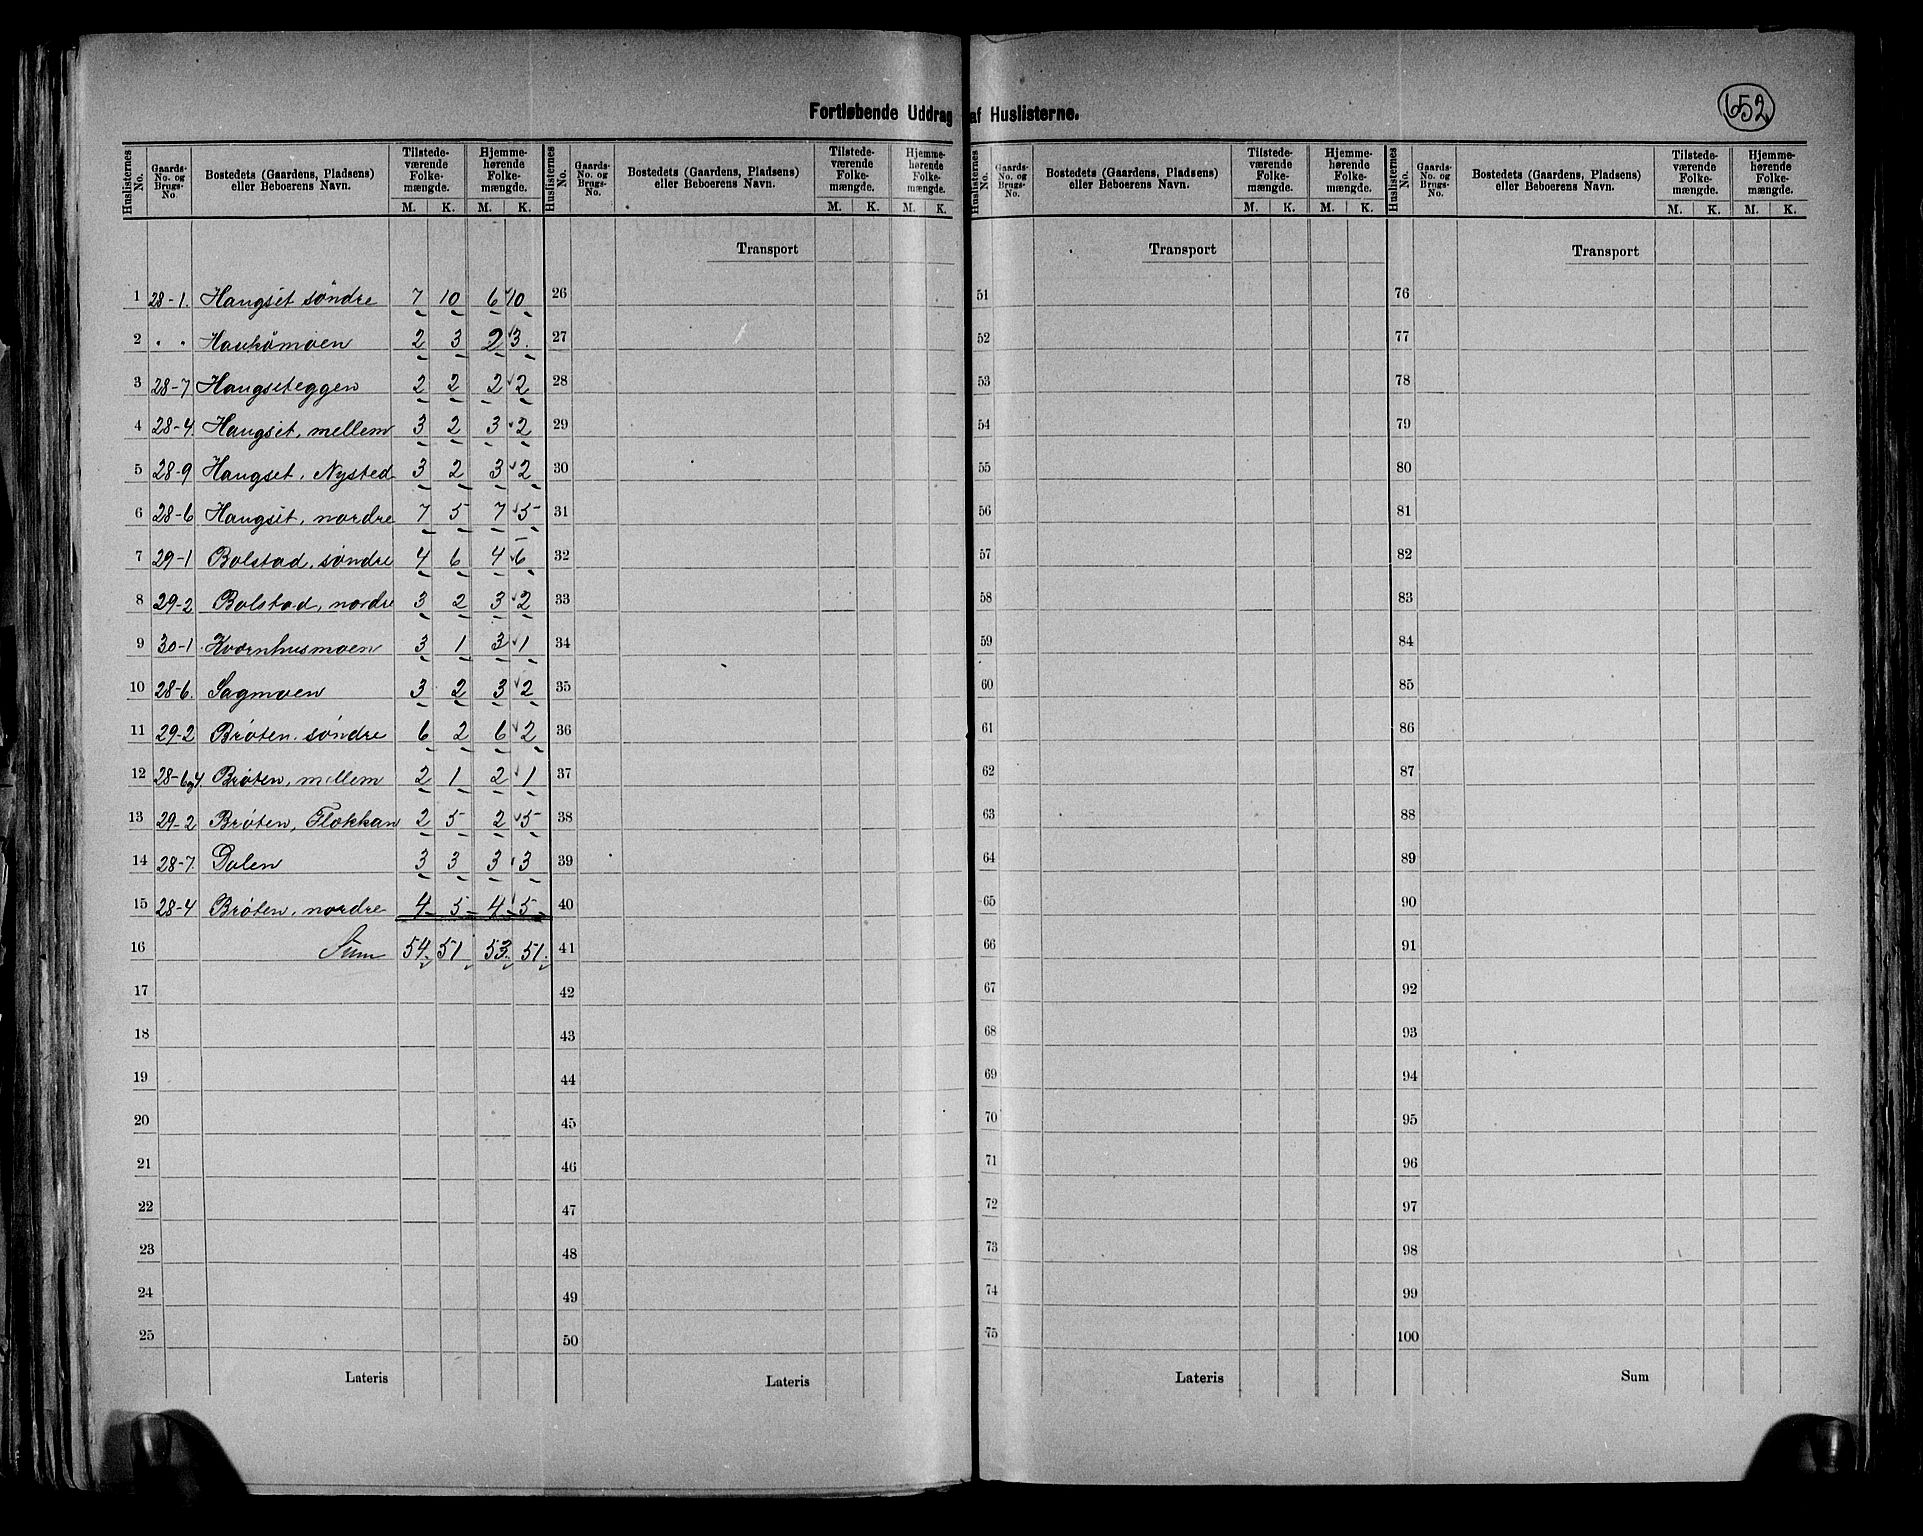 652
Fortløbende Uddrag af Huslisterne.
Huslisternes No. | Gaards-No. og Brugs-No. | Bostedets (Gaardens, Pladsens) eller Beboerens Navn. | Tilstedeværende Folkemængde. M. K. | Hjemmehørende Folkemængde. M. K.
1 28-1. Haugset søndre 7 10 6 10
2 " " Haukømoen 2 3 2 3.
3 28-7 Haugseteggen 2 2 2 2
4 28-4. Haugset, mellem 3 2 3 2
5 28-9 Haugset, Nysted 3 2 3 2
6 28-6 Haugset, nordre 7 5 7 5
7 29-1 Bolstad, søndre 4 6 4 6
8 29-2 Bolstad, nordre 3 2 3 2
9 30-1. Kværnhusmoen 3 1 3 1
10 28-6. Sagmoen 3 2 3 2
11 29-2 Brøten, søndre 6 2 6 2
12 28-6 og 4. Brøten, mellem 2 1 2 1
13 29-2 Brøten, Flækkan 2 5 2 5
14 28-7. Dalen 3 3 3 3
15 28-4 Brøten, nordre 4 5 4 5
16 Sum 54 51 53 51.
17
18
19
20
21
22
23
24
25
Lateris
Huslisternes No. | Gaards-No. og Brugs-No. | Bostedets (Gaardens, Pladsens) eller Beboerens Navn. | Tilstedeværende Folkemængde. M. K. | Hjemmehørende Folkemængde. M. K.
Transport
26
27
28
29
30
31
32
33
34
35
36
37
38
39
40
41
42
43
44
45
46
47
48
49
50
Lateris
Huslisternes No. | Gaards-No. og Brugs-No. | Bostedets (Gaardens, Pladsens) eller Beboerens Navn. | Tilstedeværende Folkemængde. M. K. | Hjemmehørende Folkemængde. M. K.
Transport
51
52
53
54
55
56
57
58
59
60
61
62
63
64
65
66
67
68
69
70
71
72
73
74
75
Lateris
Huslisternes No. | Gaards-No. og Brugs-No. | Bostedets (Gaardens, Pladsens) eller Beboerens Navn. | Tilstedeværende Folkemængde. M. K. | Hjemmehørende Folkemængde. M. K.
Transport
76
77
78
79
80
81
82
83
84
85
86
87
88
89
90
91
92
93
94
95
96
97
98
99
100
Sum